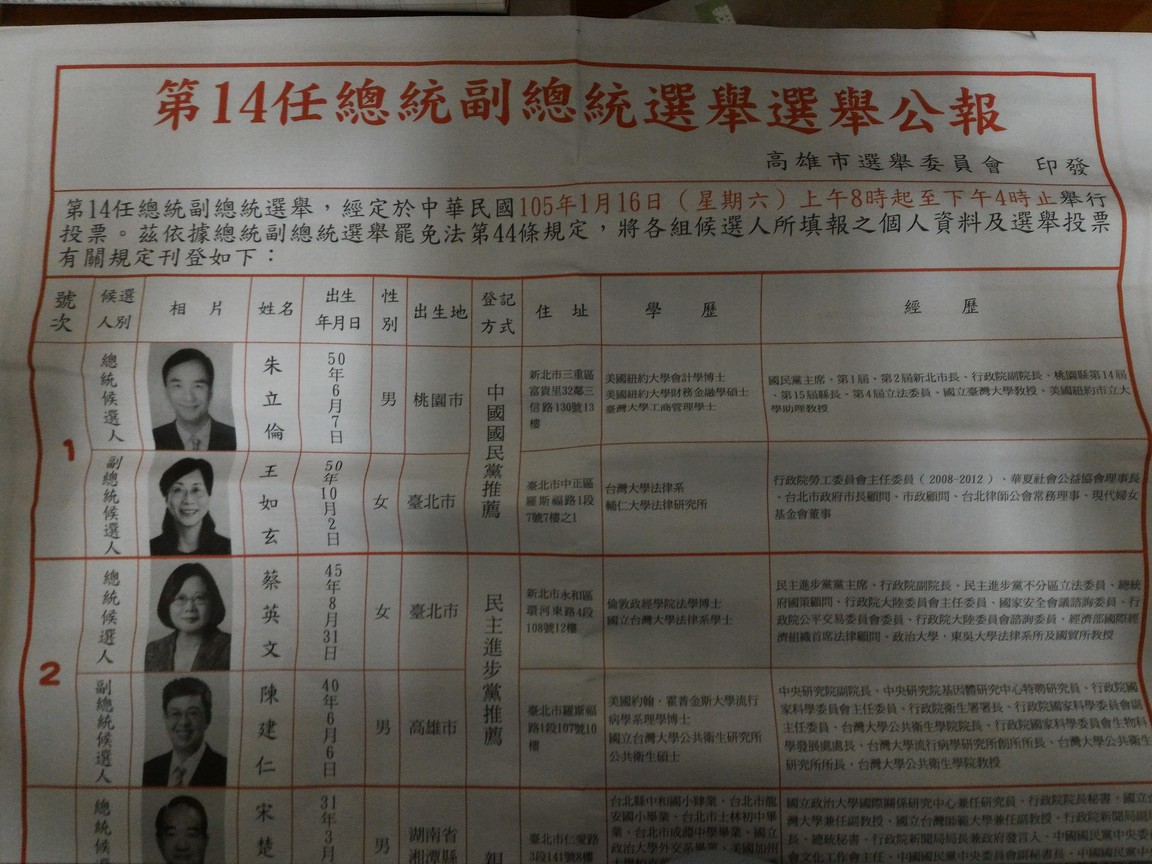 第14任總統副總統選舉選舉公報
高雄市選舉委員會 印發
第14任總統副總統選舉，經定於中華民國105年1月16日（星期六）上午8時起至下午4時止舉行
投票。茲依據總統副總統選舉罷免法第44條規定，將各組候選人所填報之個人資料及選舉投票
有關規定刊登如下：
號次 候選人別 相片 姓名 出生年月日 性別 出生地 登記方式 住址 學歷 經歷
1
中國國民黨推薦
總統候選人
朱立倫
50年6月7日
男
桃園市
新北市三重區
富貴里32鄰三
信路130號13
樓
美國紐約大學會計學博士
美國紐約大學財務金融學碩士
臺灣大學工商管理學士
國民黨主席、第1屆、第2屆新北市長、行政院副院長、桃園縣第14屆
、第15屆縣長、第4屆立法委員、國立臺灣大學教授、美國紐約市立大
學助理教授
副總統候選人
王如玄
50年10月2日
女
臺北市
臺北市中正區
羅斯福路1段
7號7樓之1
台灣大學法律系
輔仁大學法律研究所
行政院勞工委員會主任委員（2008-2012）、華夏社會公益協會理事長
、台北市政府市長顧問、市政顧問、台北律師公會常務理事、現代婦女
基金會董事
2
民主進步黨推薦
總統候選人
蔡英文
45年8月31日
女
臺北市
新北市永和區
環河東路4段
108號12樓
倫敦政經學院法學博士
國立台灣大學法律系學士
民主進步黨黨主席、行政院副院長、民主進步黨不分區立法委員、總統
府國策顧問、行政院大陸委員會主任委員、國家安全會議諮詢委員、行
政院公平交易委員會委員、行政院大陸委員會諮詢委員、經濟部國際經
濟組織首席法律顧問、政治大學、東吳大學法律系所及國貿所教授
副總統候選人
陳建仁
40年6月6日
男
高雄市
臺北市羅斯福
路1段107號10
樓
美國約翰．霍普金斯大學流行
病學系理學博士
國立台灣大學公共衛生研究所
公共衛生碩士
中央研究院副院長、中央研究院基因體研究中心特聘研究員、行政院國
家科學委員會主任委員、行政院衛生署署長、行政院國家科學委員會副
主任委員、台灣大學公共衛生學院院長、行政院國家科學委員會生物科
學發展處處長、台灣大學流行病學研究所創所所長、台灣大學公共衛生
研究所所長、台灣大學公共衛生學院教授
總統
宋楚
31年3月
男
湖南省
湘潭縣
臺北市仁愛路
3段141號8樓
台北縣中和國小肄業、台北市龍
安國小畢業、台北市士林初中畢
業、台北市成淵中學畢業、國立
政治大學外交系畢業、美國加州
國立政治大學國際關係研究中心兼任研究員、行政院院長秘書、國立台
灣大學兼任副教授、國立台灣師範大學兼任副教授、行政院新聞局副局
長、總統秘書、行政院新聞局局長兼政府發言人、中國國民黨中央委
會文化工作會主任、中國國民黨中央委員會副秘書長、中國國民黨中